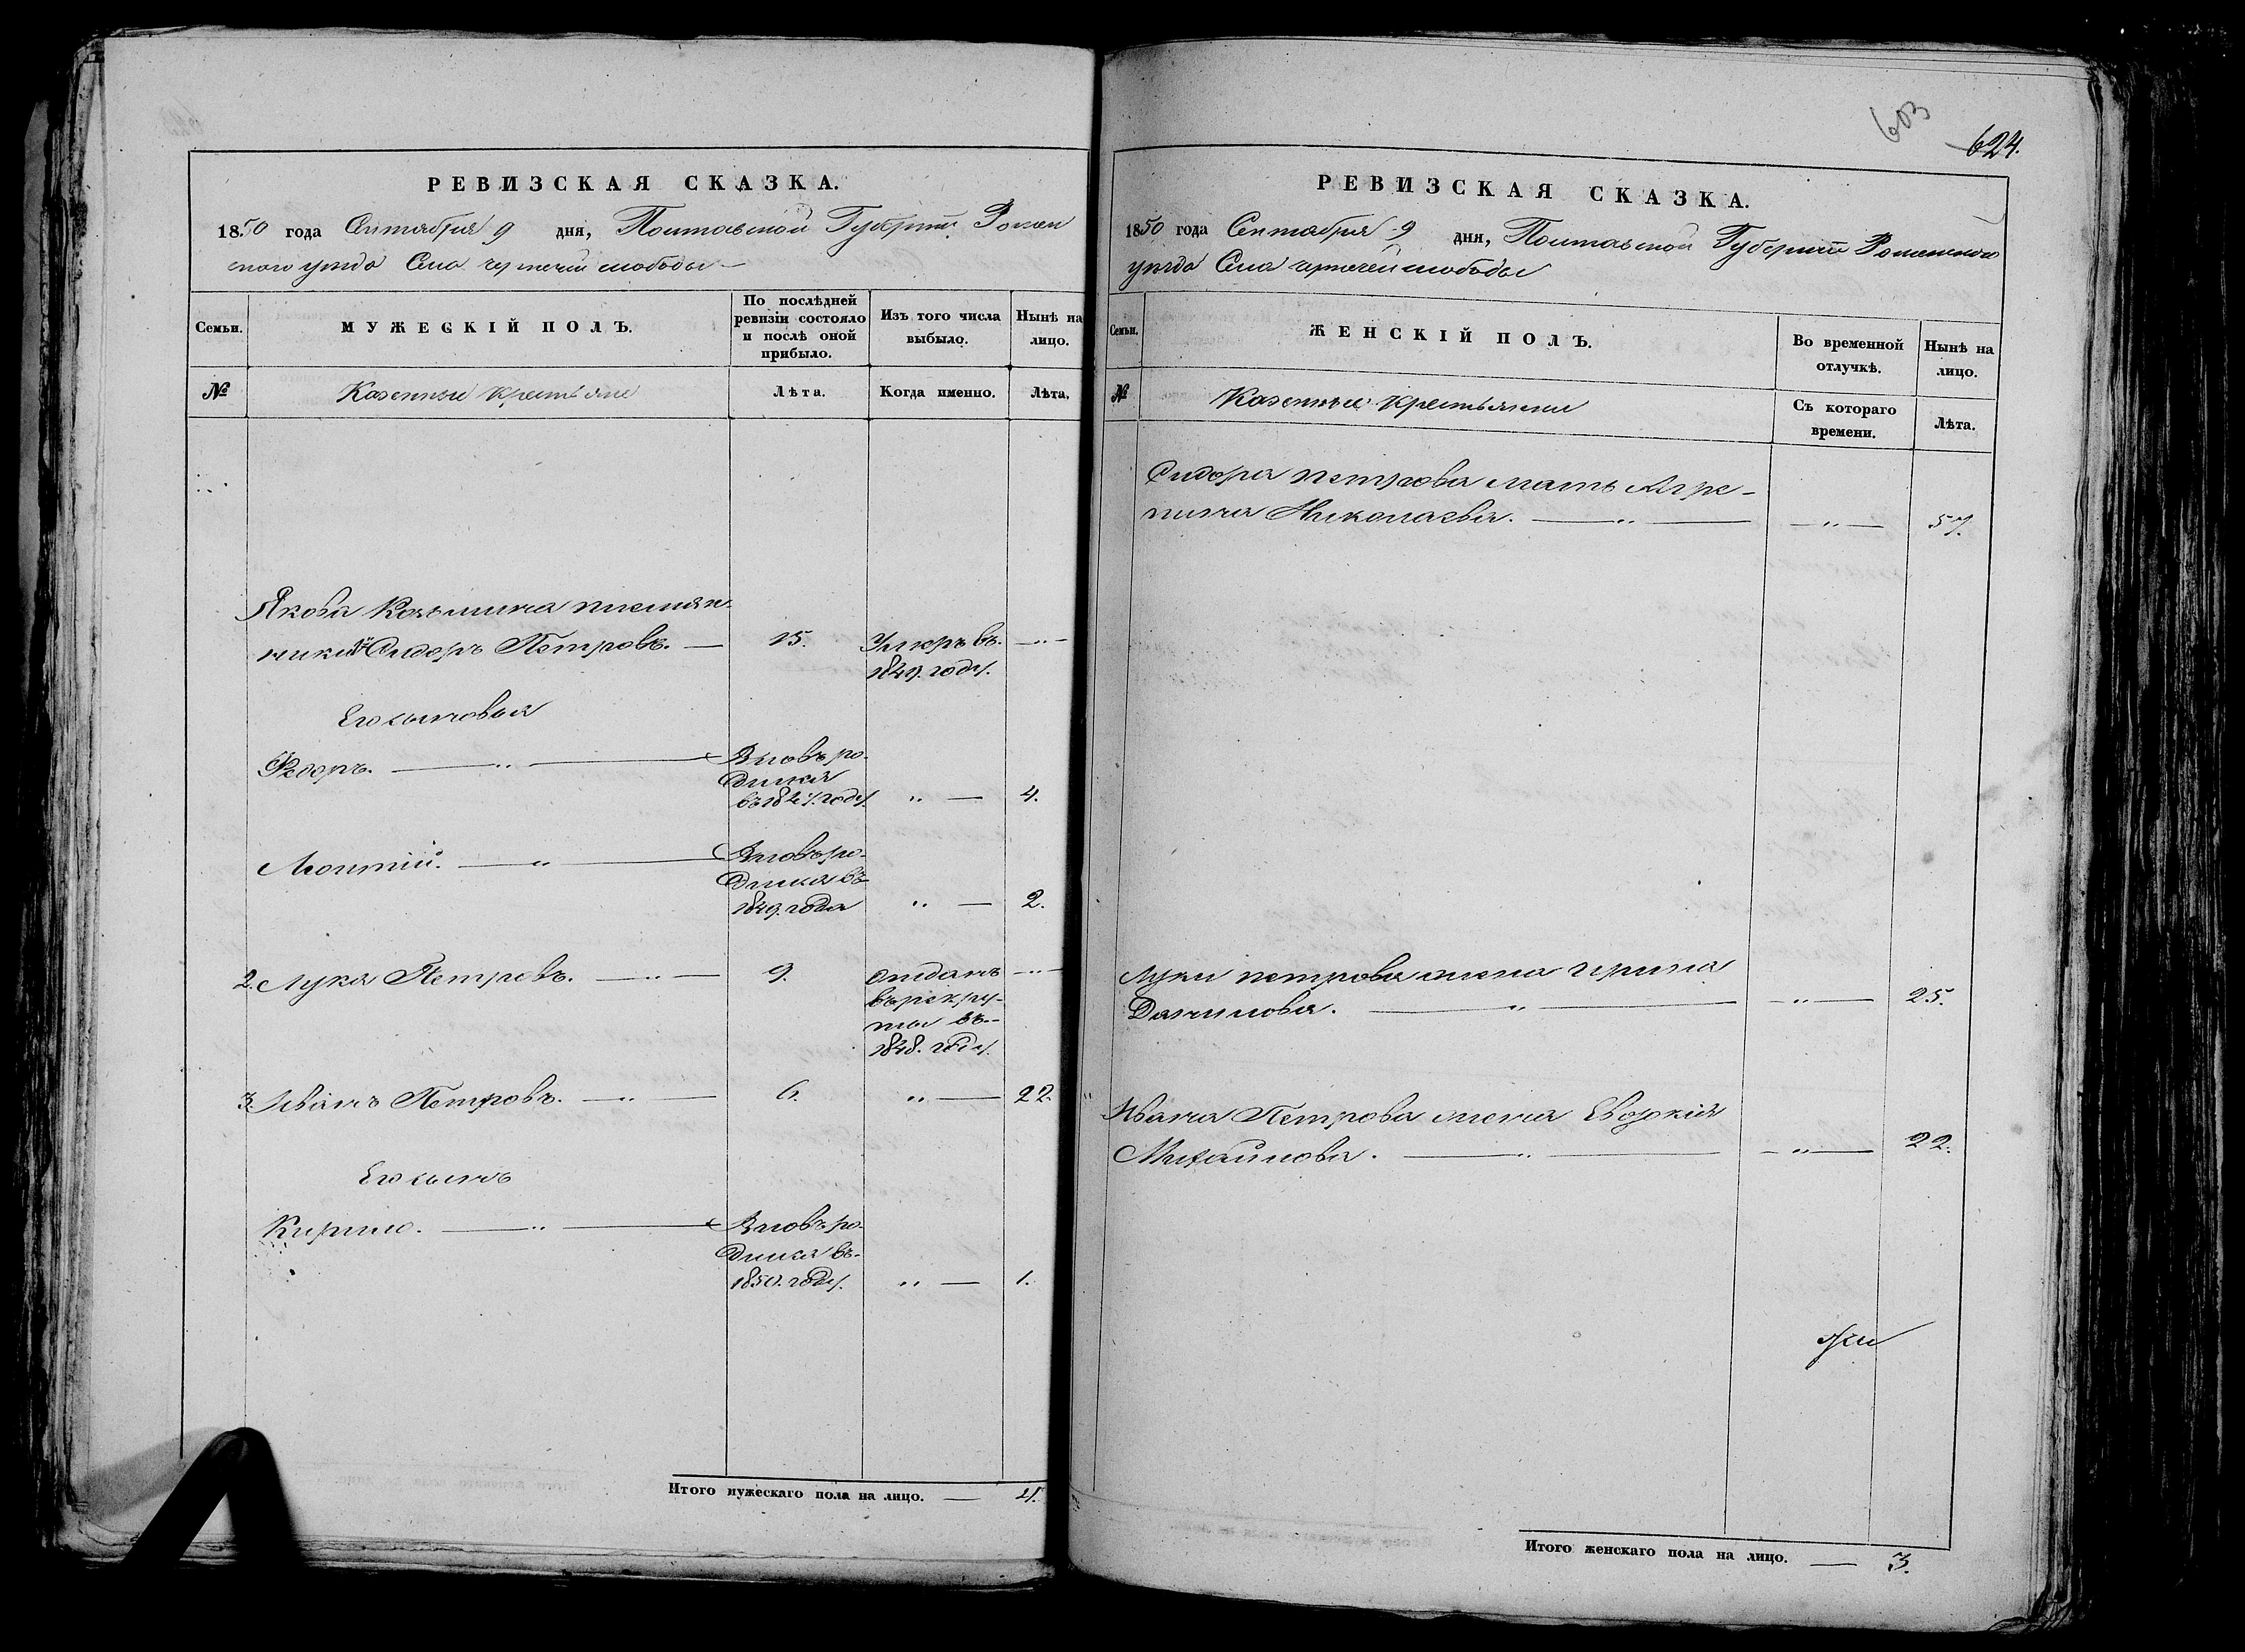 РЕВИЗСКАЯ СКАЗКА.
1850 года Сентября 9 дня, Полтавской Губерніи Ромен
ского уезда Села чертечей слободы —
Семьи.
МУЖЕСКІЙ ПОЛЪ.
По послѣдней
ревизіи состояло
и послѣ оной
прибыло.
Изъ того числа
выбыло.
Нынѣ на
лицо.
№
Казенные крестьяне
Лѣта.
Когда именно.
Лѣта.
Якова Козьмина племян-
ники 1й Сидоръ Петровъ. — 15. Умеръ въ — „ —
1849. году.
Его сыновья
Федоръ. — „ — Вновь ро-
дился
въ 1847. году. „ — 4.
Леонтій. — „ — Вновь ро-
дился въ
1849. года „ — 2.
2. Лука Петровъ. — „ — 9. отданъ — „ —
въ рекру-
ты въ-
1848. году.
3. Иванъ Петровъ. — „ — 6. „ — 22.
Его сынъ
Кирило. — „ — Вновь ро-
дился въ-
1850. году. „ — 1.
Итого мужескаго пола на лицо. — 4.
603
624.
РЕВИЗСКАЯ СКАЗКА.
1850 года Сентября 9 дня, Полтавской Губерніи Роменского
уезда Села чертечей слободы
Семьи.
ЖЕНСКІЙ ПОЛЪ.
Во временной
отлучкѣ.
Нынѣ на
лицо.
№
Казенные крестьянки
Съ котораго
времени.
Лѣта.
Сидора петрова мать Агре-
пина Николаева. — „ — — „ — 57.
Луки петрова жена Ирина
Данилова. — „ — — „ — 25.
Ивана Петрова жена Евдокія
Михайлова. — „ — — „ — 22.
Итого женскаго пола на лицо. — 3.